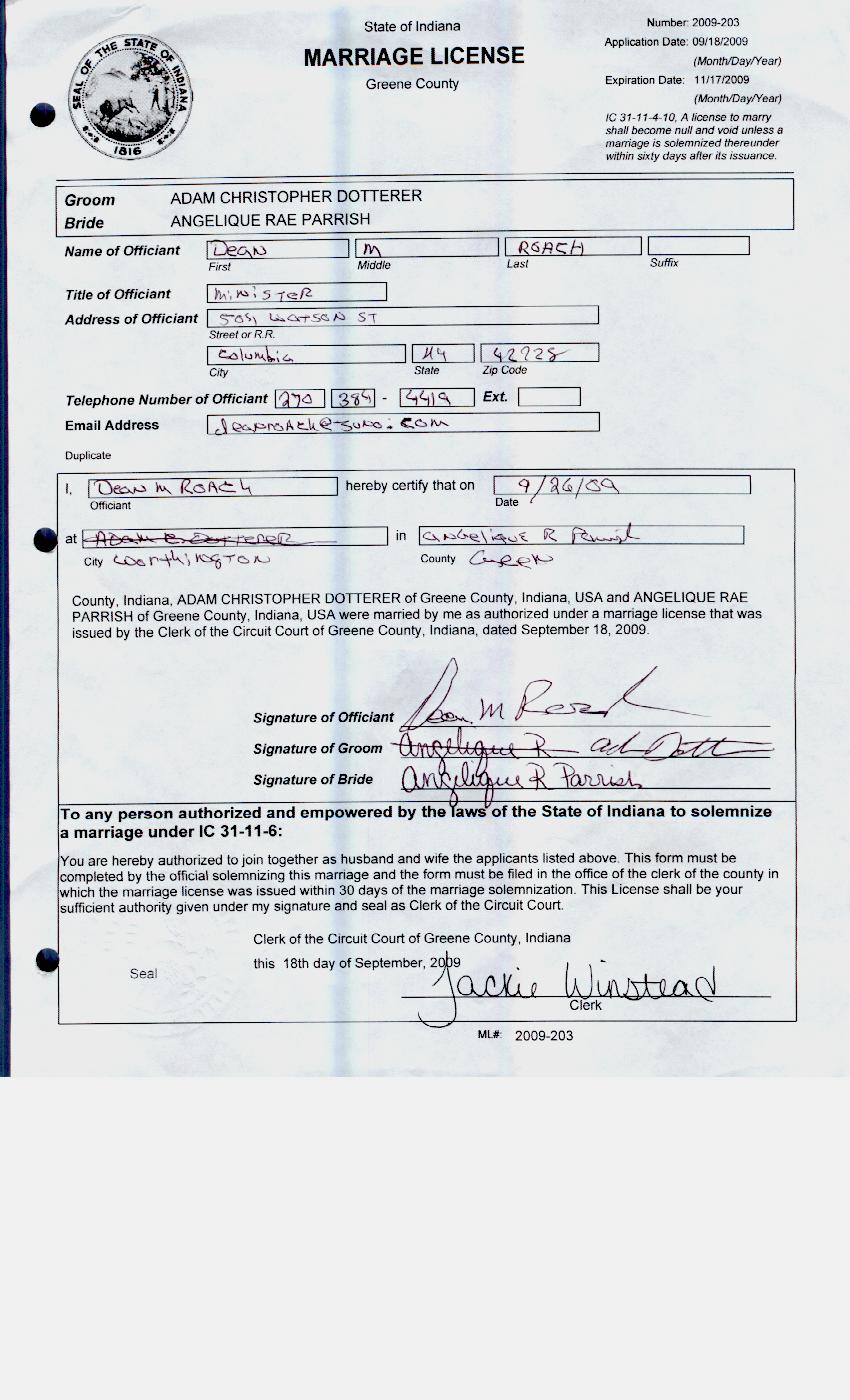 State of Indiana
MARRIAGE LICENSE
Greene County
Number: 2009-203
Application Date: 09/18/2009
(Month/Day/Year)
Expiration Date: 11/17/2009
(Month/Day/Year)
IC 31-11-4-10, A license to marry
shall become null and void unless a
marriage is solemnized thereunder
within sixty days after its issuance.
SEAL OF THE STATE OF INDIANA
1816
Groom ADAM CHRISTOPHER DOTTERER
Bride ANGELIQUE RAE PARRISH
Name of Officiant Dean M ROACH
First Middle Last Suffix
Title of Officiant MINISTER
Address of Officiant WATSON ST
Street or R.R.
Columbia KY 42728
City State Zip Code
Telephone Number of Officiant 270 384 - 4419 Ext.
Email Address
Duplicate
I, Dean M ROACH hereby certify that on 9/26/09
Officiant Date
at ADAM C DOTTERER in ANGELIQUE R Parrish
City Worthington County Green
County, Indiana, ADAM CHRISTOPHER DOTTERER of Greene County, Indiana, USA and ANGELIQUE RAE
PARRISH of Greene County, Indiana, USA were married by me as authorized under a marriage license that was
issued by the Clerk of the Circuit Court of Greene County, Indiana, dated September 18, 2009.
Signature of Officiant Dean M Roach
Signature of Groom Angelique R
Signature of Bride Angelique R Parrish
To any person authorized and empowered by the laws of the State of Indiana to solemnize
a marriage under IC 31-11-6:
You are hereby authorized to join together as husband and wife the applicants listed above. This form must be
completed by the official solemnizing this marriage and the form must be filed in the office of the clerk of the county in
which the marriage license was issued within 30 days of the marriage solemnization. This License shall be your
sufficient authority given under my signature and seal as Clerk of the Circuit Court.
Clerk of the Circuit Court of Greene County, Indiana
this 18th day of September, 2009
Seal
Jackie Winstead
Clerk
ML#: 2009-203